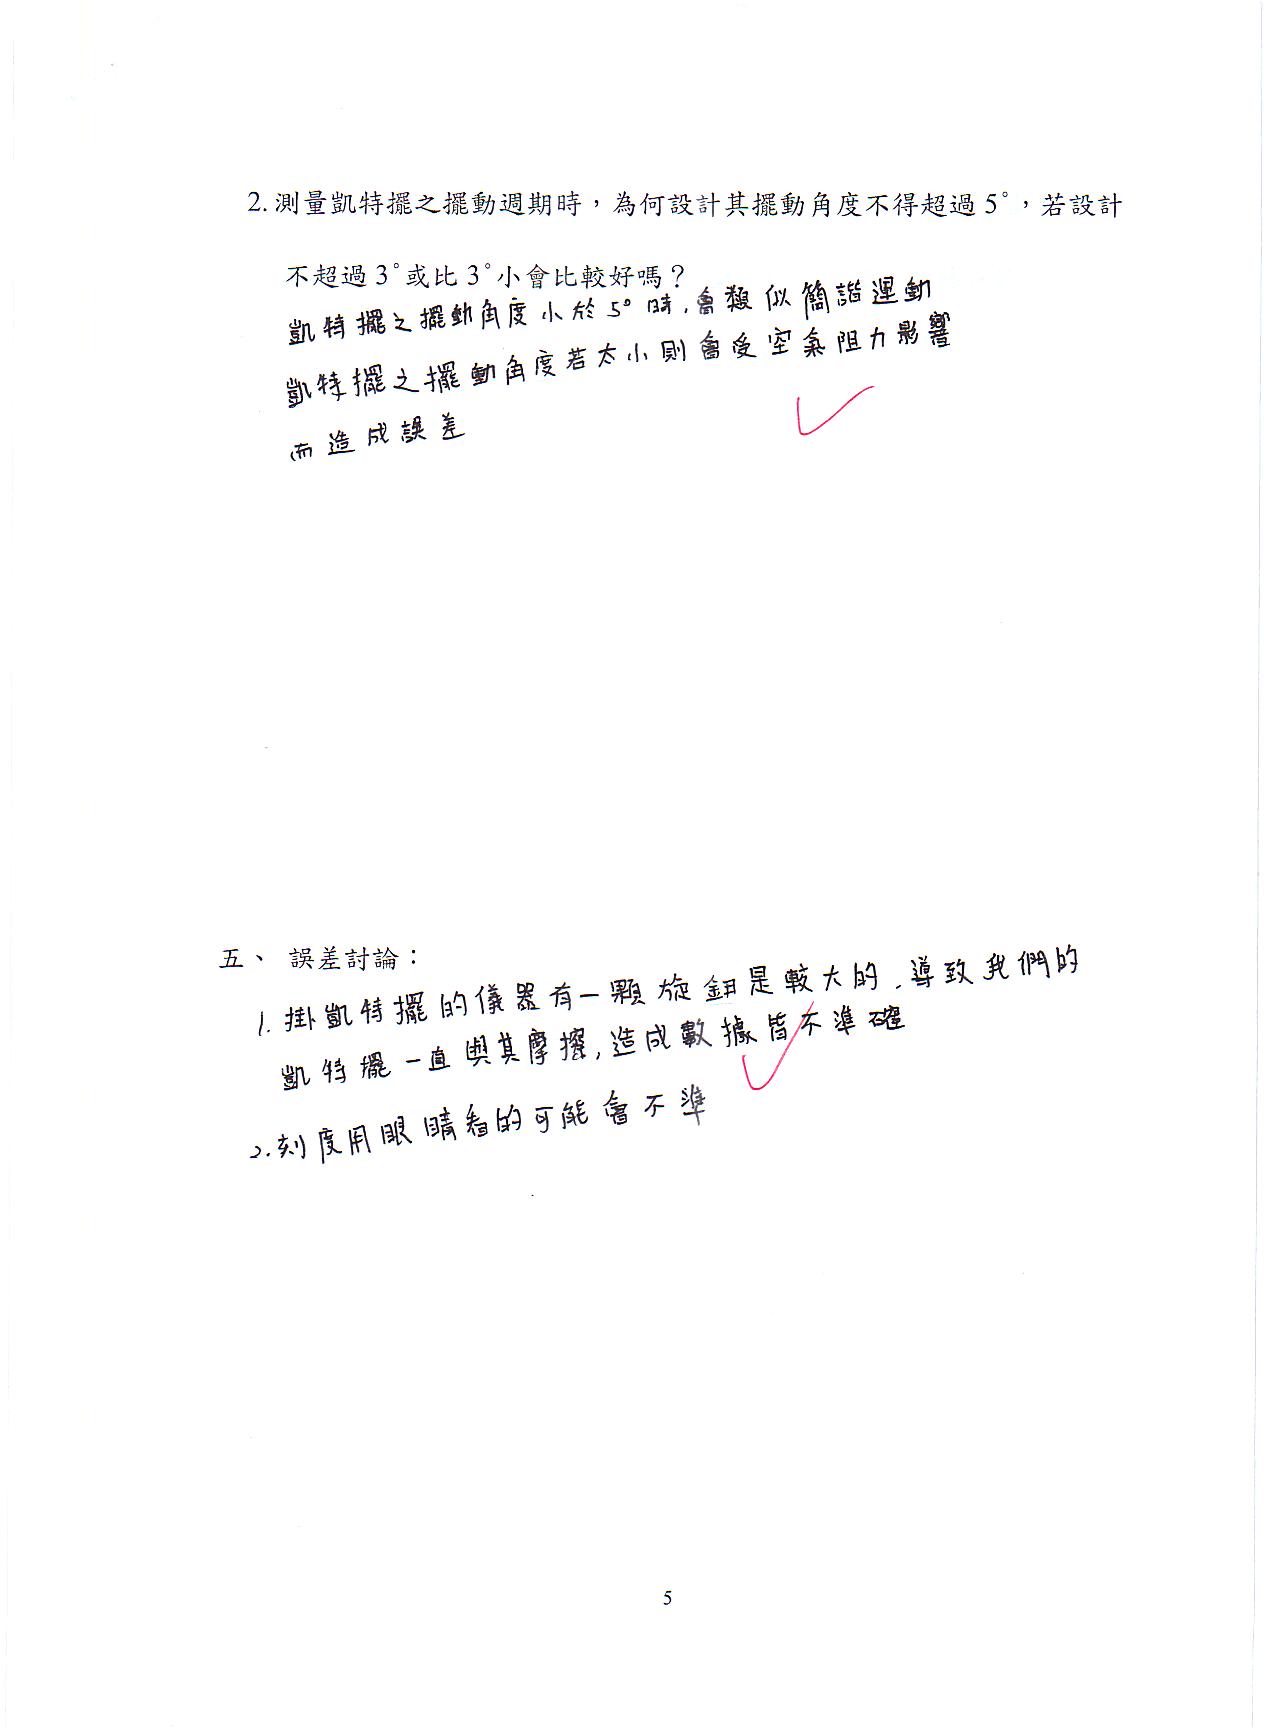 2. 測量凱特擺之擺動週期時，為何設計其擺動角度不得超過 5°，若設計
不超過 3°或比 3°小會比較好嗎？
凱特擺之擺動角度小於5°時，會類似簡諧運動
凱特擺之擺動角度若太小則會受空氣阻力影響
而造成誤差
五、 誤差討論：
1. 掛凱特擺的儀器有一顆旋鈕是較大的，導致我們的
凱特擺一直與其摩擦，造成數據皆不準確
2. 刻度用眼睛看的可能會不準
5